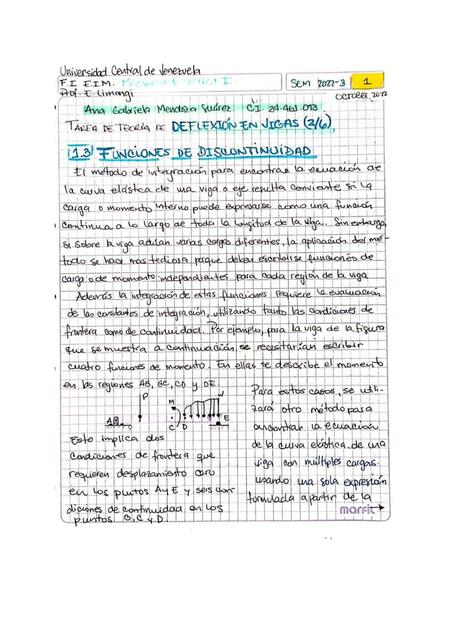 Universidad Central de Venezuela
F.I. E.I.M.
Prof. E. Limongi
SEM 2022-3
1
OCTUBRE, 2022
Ana Gabriela Mendoza Suárez. C.I. 24.461.013
TAREA DE TEORÍA DE DEFLEXIÓN EN VIGAS (3/6).
1.3) FUNCIONES DE DISCONTINUIDAD
El método de integración para encontrar la ecuación de
la curva elástica de una viga o eje resulta conveniente si la
carga o momento interno puede expresarse como una función
continua a lo largo de toda la longitud de la viga. Sin embargo,
si sobre la viga actúan varias cargas diferentes, la aplicación del mé-
todo se hace más tediosa porque deben escribirse funciones de
carga o de momento independientes para cada región de la viga
Además la integración de estas funciones requiere la evaluación
de las constantes de integración, utilizando tanto las condiciones de
frontera como de continuidad. Por ejemplo, para la viga de la figura
que se muestra a continuación, se necesitarían escribir
cuatro funciones de momento. En ellas se describe el momento
en las regiones AB, BC, CD y DE.
P
M
W
A B
C D
E
Esto implica dos
condiciones de frontera que
requieren desplazamiento cero
en los puntos A y E y seis con
diciones de continuidad en los
puntos B, C y D.
Para estos casos, se utili-
zará otro método para
encontrar la ecuación
de la curva elástica de una
viga con múltiples cargas.
usando una sola expresión
formulada a partir de la
marfit